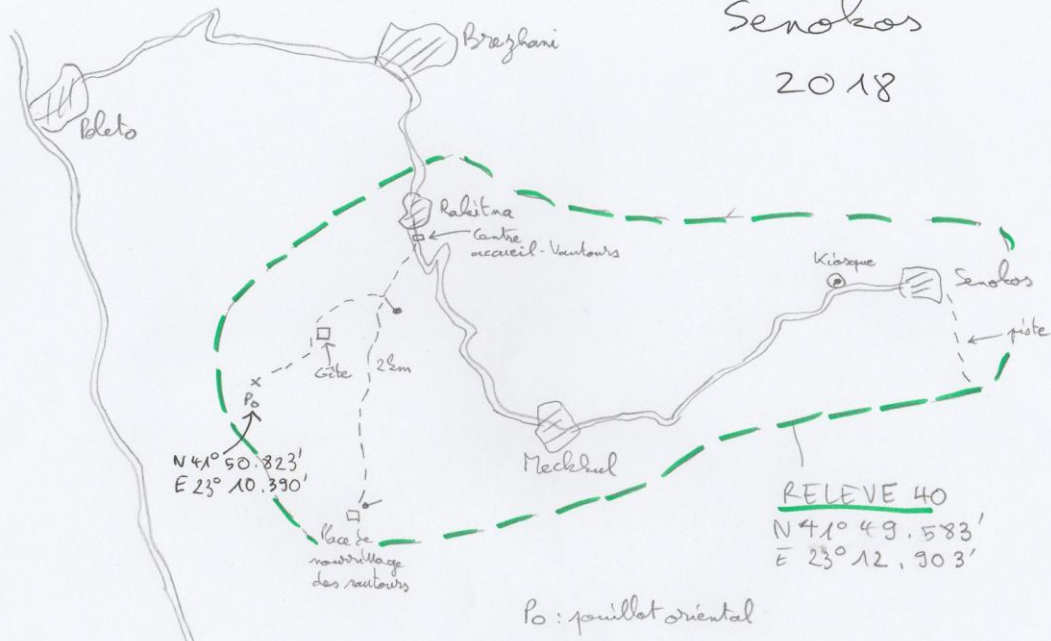 Senokos
2018
Brezhani
Poleto
Rakitna
Centre
accueil-Vautours
Kiosque
Senokos
piste
Gîte
2km
Po
N 41° 50.823'
E 23° 10.390'
Meckkul
RELEVE 40
N 41° 49.583'
E 23° 12.903'
Place de
nourrissage
des vautours
Po : pouillot oriental